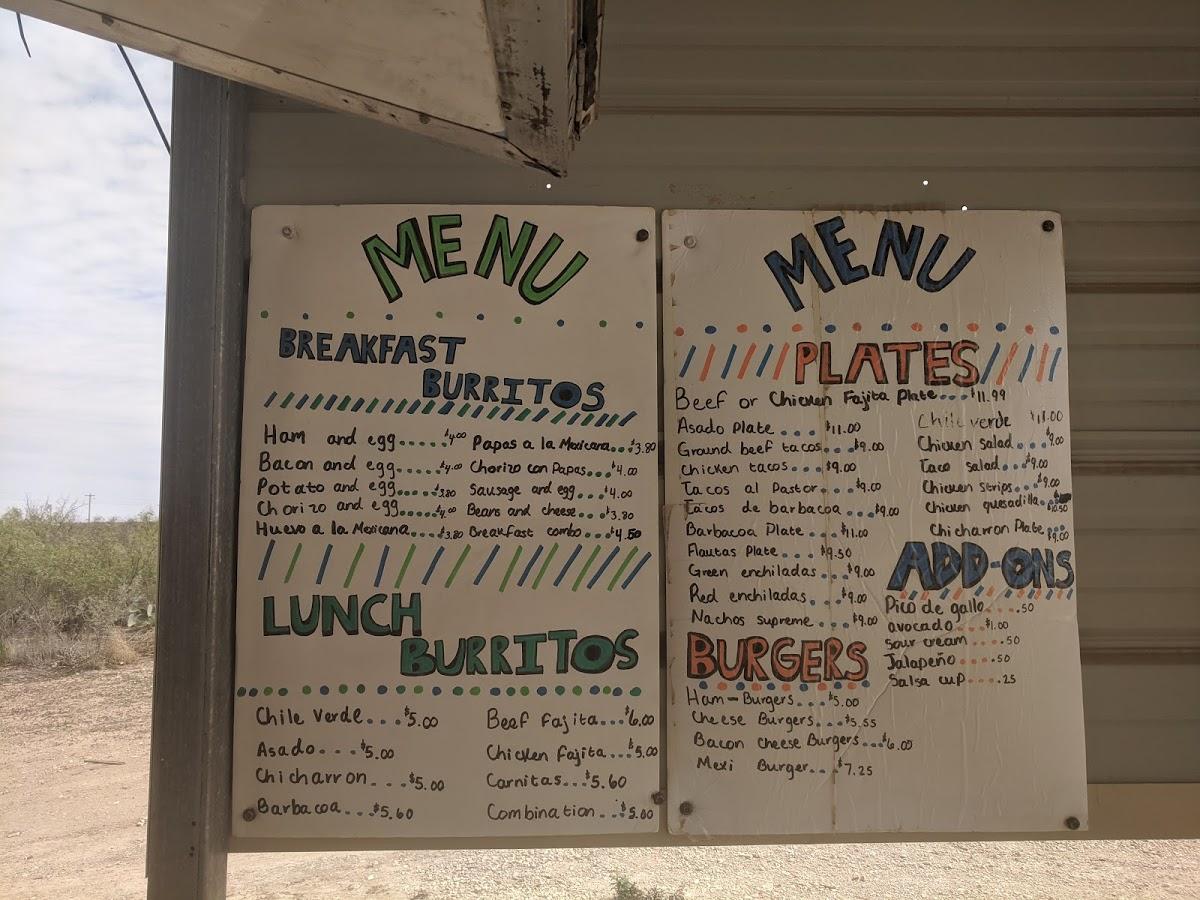 MENU
BREAKFAST
BURRITOS
Ham and egg.....$4.00
Bacon and egg.....$4.00
Potato and egg.....$3.80
Chorizo and egg.....$4.00
Huevo a la Mexicana....$3.80
Papas a la Mexicana...$3.80
Chorizo con Papas....$4.00
Sausage and egg....$4.00
Bears and cheese....$3.80
Breakfast combo....$4.50
LUNCH
BURRITOS
Chile Verde...$5.00
Asado....$5.00
Chicharron...$5.00
Barbacoa...$5.60
Beef Fajita...$6.00
Chicken Fajita...$5.00
Carnitas...$5.60
Combination...$5.00
MENU
PLATES
Beef or Chicken Fajita Plate....$11.99
Asado Plate....$11.00
Ground beef tacos...$9.00
Chicken tacos...$9.00
Tacos al Pastor...$9.00
Tacos de barbacoa...$9.00
Barbacoa Plate...$11.00
Flautas Plate....$9.50
Green enchiladas...$9.00
Red enchiladas...$9.00
Nachos supreme...$9.00
Chile verde $11.00
Chicken salad...$9.00
Taco salad...$9.00
Chicken strips...$9.00
Chicken quesadilla...$10.50
Chicharron Plate...$9.00
ADD-ONS
Pico de gallo.....50
avocado....$1.00
sour cream.....50
Jalapeño.....50
Salsa cup.....25
BURGERS
Ham-Burgers...$5.00
Cheese Burgers...$5.55
Bacon Cheese Burgers...$6.00
Mexi Burger...$7.25